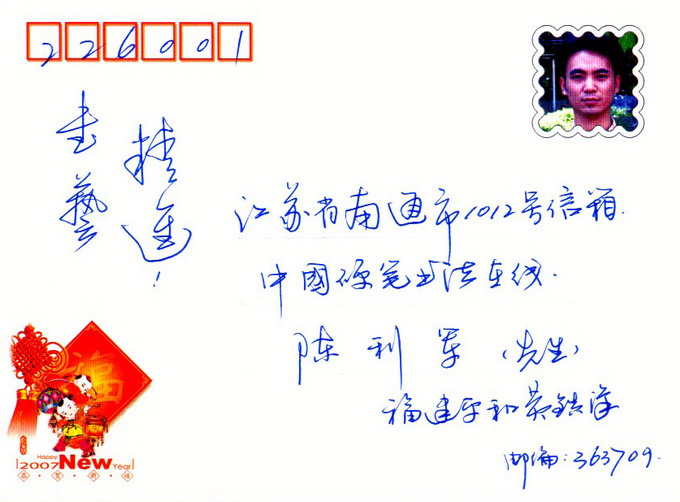 226001
書藝
精進!
江苏省南通市1012号信箱.
中國硬笔书法在线.
陈利军(先生)
福建平和黄鎮洋
邮编:363709.
福
Happy
2007 New Year
恭贺新禧